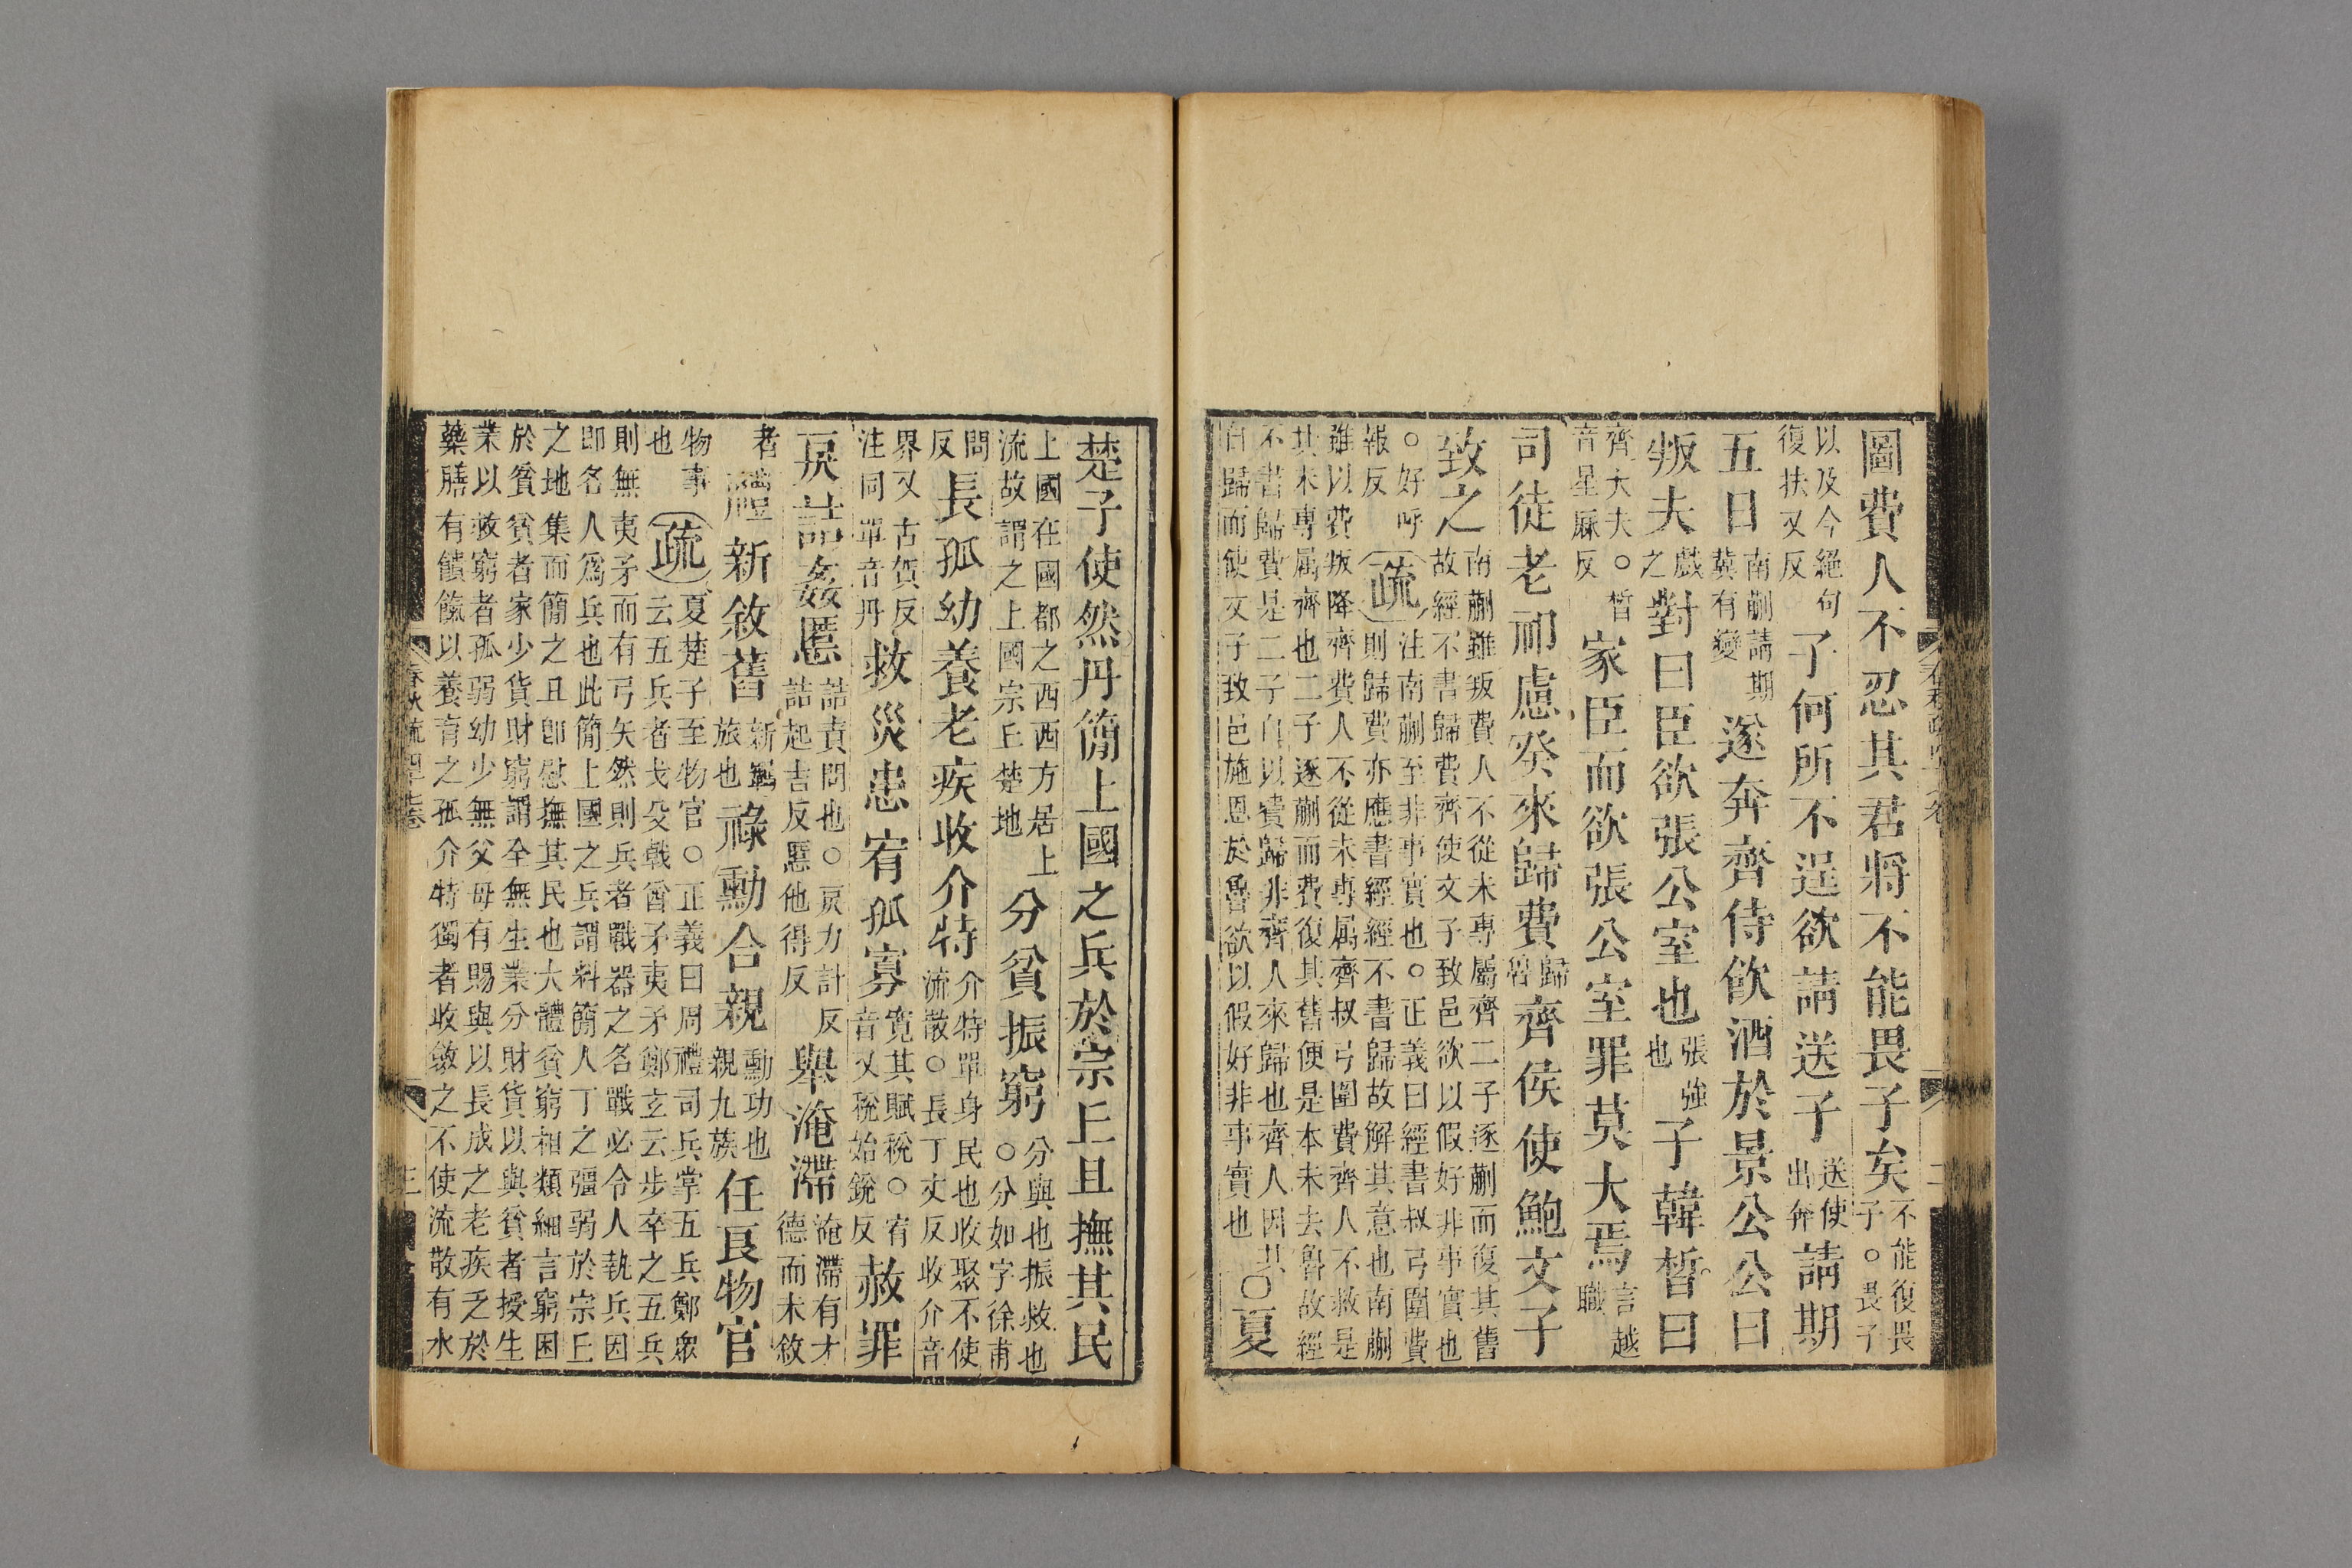 圖費人不忍其君將不能畏子矣不能復畏子○畏子
以及今絕句復扶又反子何所不逞欲請送子送使出奔請期
五日南蒯請期冀有變遂奔齊侍飲酒於景公公曰
叛夫戲之對曰臣欲張公室也張強也子韓皙曰
齊大夫○皙音星厤反家臣而欲張公室罪莫大焉言越職
司徒老祁慮癸來歸費歸魯齊侯使鮑文子
致之南蒯雖叛費人不從未專屬齊二子逐蒯而復其舊故經不書歸費齊使文子致邑欲以假好非事實也
○好呼報反疏注南蒯至非事實也○正義曰經書叔弓圍費則歸費亦應書經經不書歸故解其意也南蒯
雖以費叛降齊費人不從未專属齊叔弓圍費齊人不救是其未專属齊也二子逐蒯而費復其舊便是本未去魯故經
不書歸費是二子自以費歸非齊人來歸也齊人因其自歸而使文子致邑施恩於魯欲以假好非事實也○夏
楚子使然丹簡上國之兵於宗丘且撫其民
上國在國都之西西方居上流故謂之上國宗丘楚地分貧振窮分與也振救也○分如字徐甫
問反長孤幼養老疾收介特介特單身民也收聚不使流散○長丁丈反收介音
界又古賀反注同單音丹救災患宥孤寡寬其賦稅○宥音又稅始銳反赦罪
戾詰姦慝詰責問也○戾力計反詰起吉反慝他得反舉淹滯淹滯有才德而未敘
者禮新敘舊新羈旅也祿勳合親勳功也親九族任良物官
物事也疏夏楚子至物官○正義曰周禮司兵掌五兵鄭衆云五兵者戈殳戟酋矛夷矛鄭玄云步卒之五兵
則無夷矛而有弓矢然則兵者戰器之名戰必令人執兵因即名人爲兵也此簡上國之兵謂料簡人丁之彊弱於宗丘
之地集而簡之且卽慰撫其民也大體貧窮相類細言窮困於貧貧者家少貨財窮謂全無生業分財貨以與貧者授生
業以救窮者孤弱幼少無父母有賜與以長成之老疾乏於藥膳有饋餼以養育之孤介特獨者收斂之不使流散有水